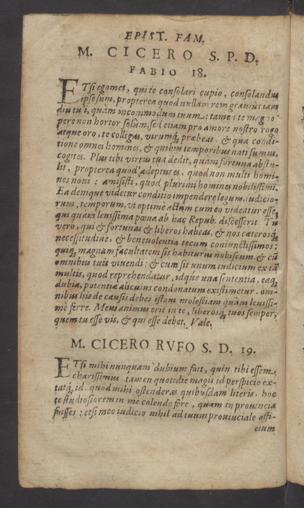 EPIST. FAM.
M. CICERO S. P. D.
FABIO 18.
ETsi egomet, qui te consolari cupio, consolandus
ipse sum, propterea quod nullam rem gravius iam
diu tuli, quàm incommodum tuum: tamen te magno-
pere non hortor solùm, sed etiam pro amore nostro rogo
atque oro, te colligas, virumq́; præbeas, & qua condi-
tione omnes homines, & quibus temporibus nati sumus,
cogites. Plus tibi virtus tua dedit, quàm fortuna abstu-
lit, propterea quod adeptus es, quod non multi homi-
nes novi: amisisti, quod plurimi homines nobilissimi.
Ea denique videtur conditio impendere legum, iudicio-
rum, temporum, vt optimè actum cum eo videatur esse,
qui quàm levissima pœna ab hac Repub. discesserit Tu
vero, qui & fortunas & liberos habeas, & nos cæterosq́;
necessitudine, & benevolentia tecum coniunctissimos:
quiq; magnam facultatem sis habiturus nobiscum, & cū
omnibus tuis vivendi: & cum sit vnum iudicium ex tā
multis, quod reprehendatur, vt quæ vna sententia, eaq́;
dubia, potentiæ alicuius condonatum existimetur. om-
nibus his de causis debes istam molestiam quàm levissi-
mè ferre. Meus animus erit in te, liberosq́; tuos semper,
quem tu esse vis, & qui esse debet. Vale.
M. CICERO RVFO S. D. 19.
ETsi mihi nunquam dubium fuit, quin tibi essem
charissimus tamen quotidie magis id perspicio ex-
tatq́; id, quod mihi ostenderas quibusdam literis, hoc
te studiosiorem in me colendo fore, quàm in provincia
fuisses: etsi meo iudicio nihil ad tuum provinciale offi-
cium